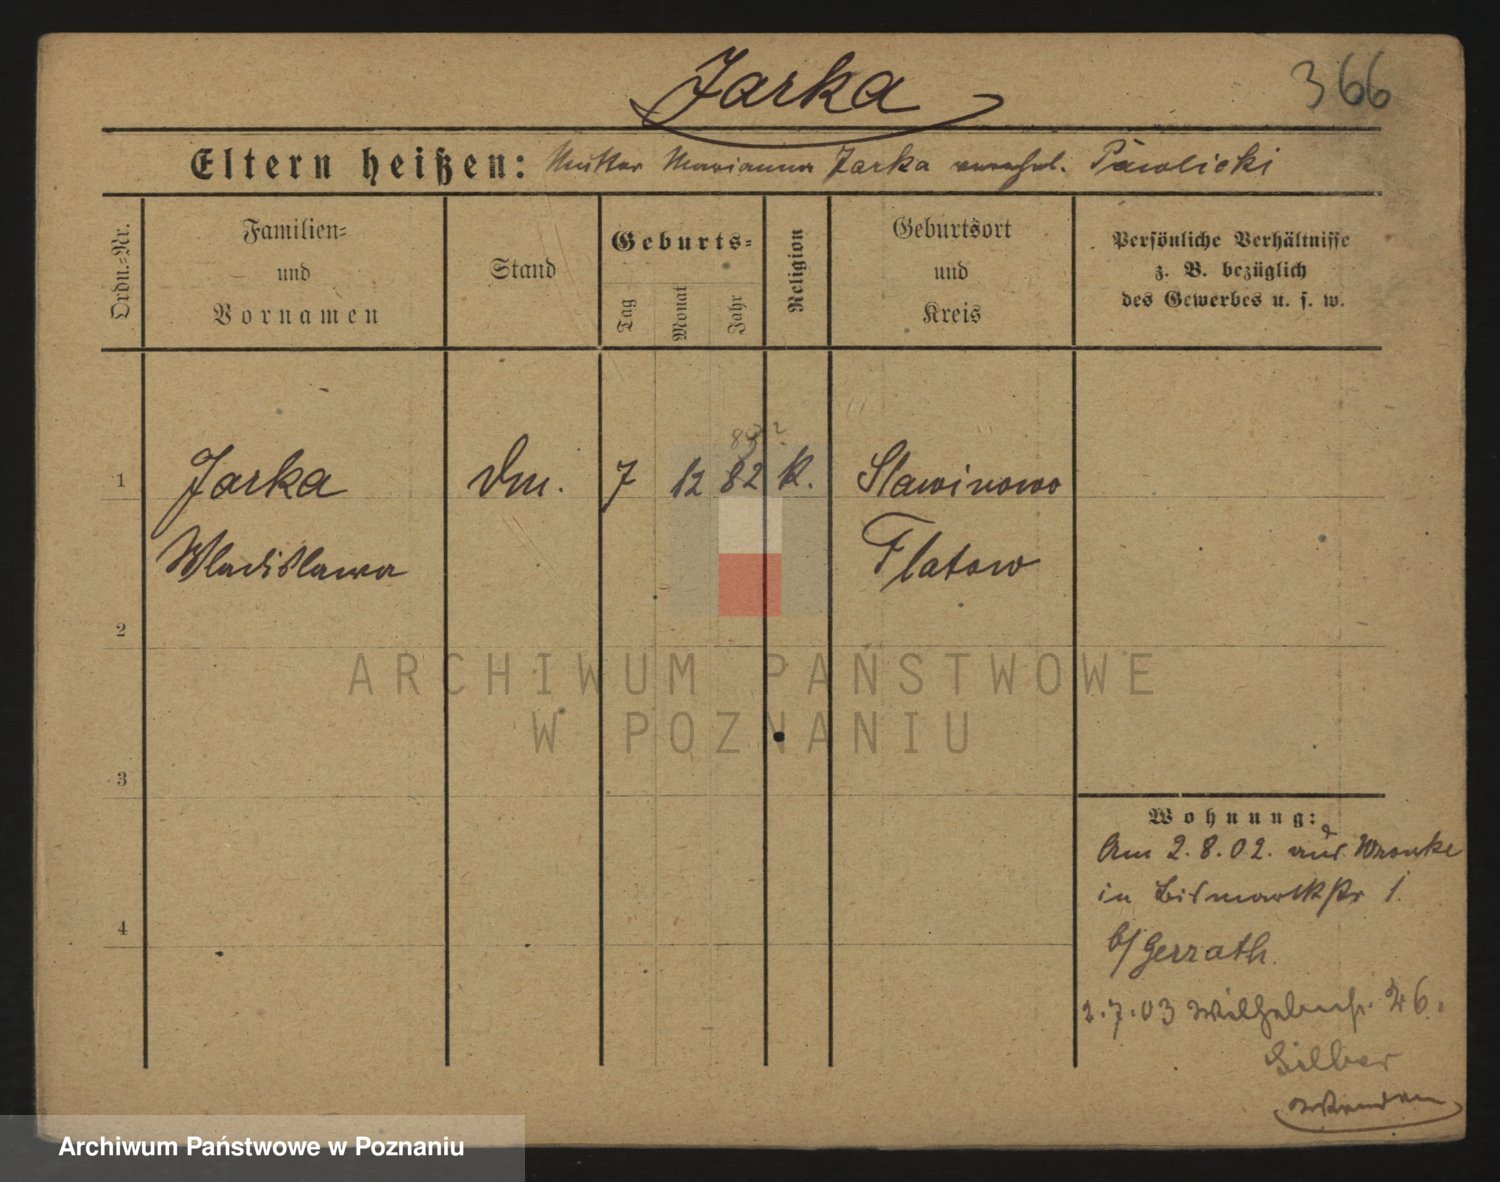 Jarka
366
Eltern heißen: Mutter Marianna Jarka verehel. Pawlicki
Ordn.-Nr.
Familien-
und
Vornamen
Stand
Geburts-
Tag
Monat
Jahr
Religion
Geburtsort
und
Kreis
Persönliche Verhältnisse
z. B. bezüglich
des Gewerbes u. s. w.
1
Jarka
Dm.
7
12
82
K.
Slawinowo
Wladislawa
Flatow
2
3
4
ARCHIWUM PAŃSTWOWE
W POZNANIU
Wohnung:
Am 2.8.02. aus Wronke
in Bismarckstr 1.
b/ Gerrath.
2.7.03 Wilhelmstr. 26.
Silber
wenden
Archiwum Państwowe w Poznaniu